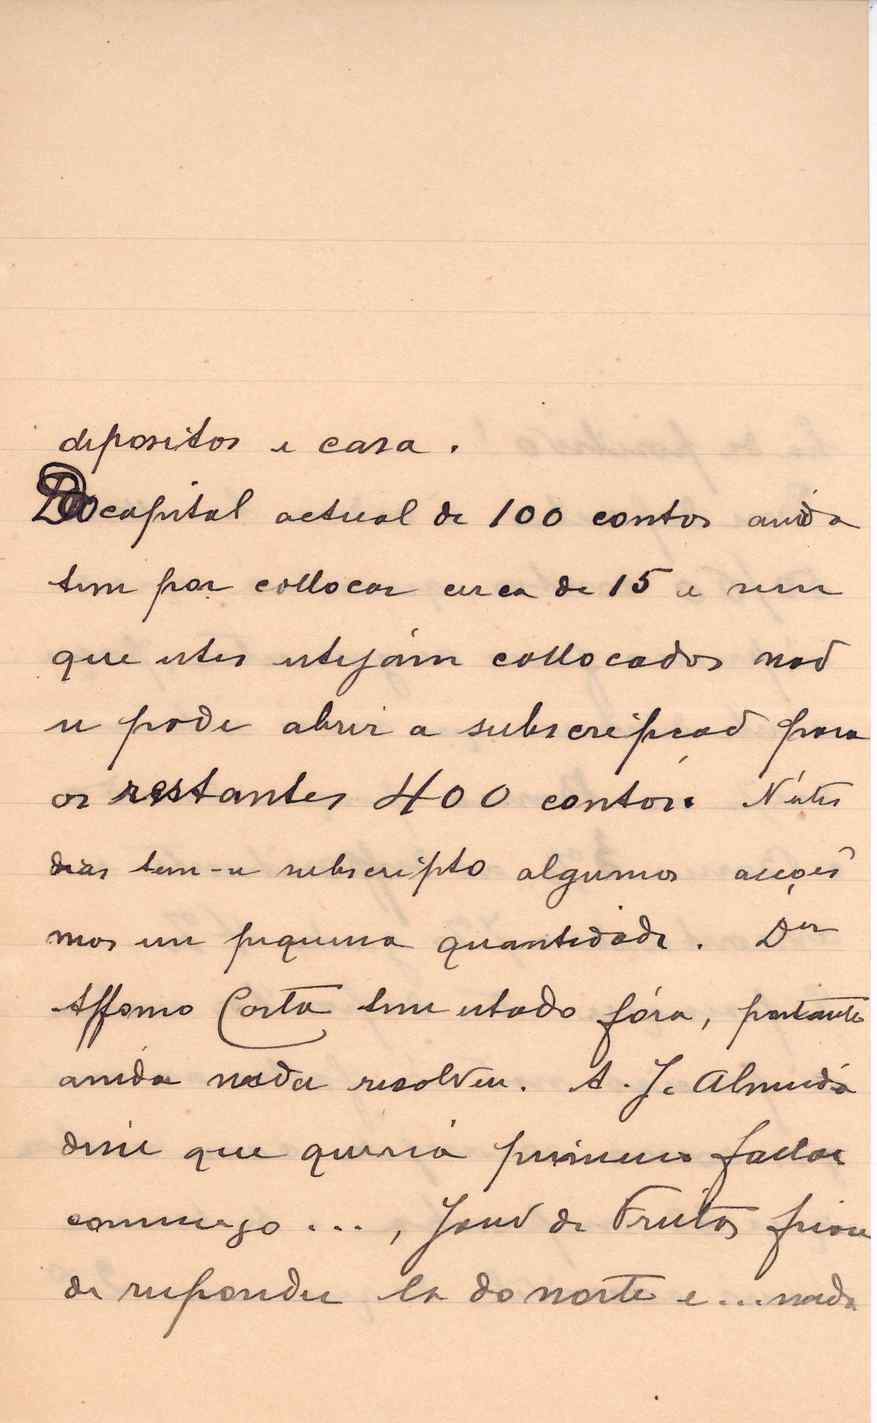 depositos e casa.
Do capital actual de 100 contos ainda
tem por collocar cerca de 15 e sem
que estes estejám collocados naõ
se pode abrir a subscripcaõ para
os restantes 400 contos. N'estes
dias tem-se subscripto algumas acções
mas em pequena quantidade. Der
Affonso Costa tem estado fóra, portanto
ainda nada resolveu. A. J. Almeida
disse que queria primeiro fallar
commigo..., João de Freitas ficou
de responder la do norte e... nada